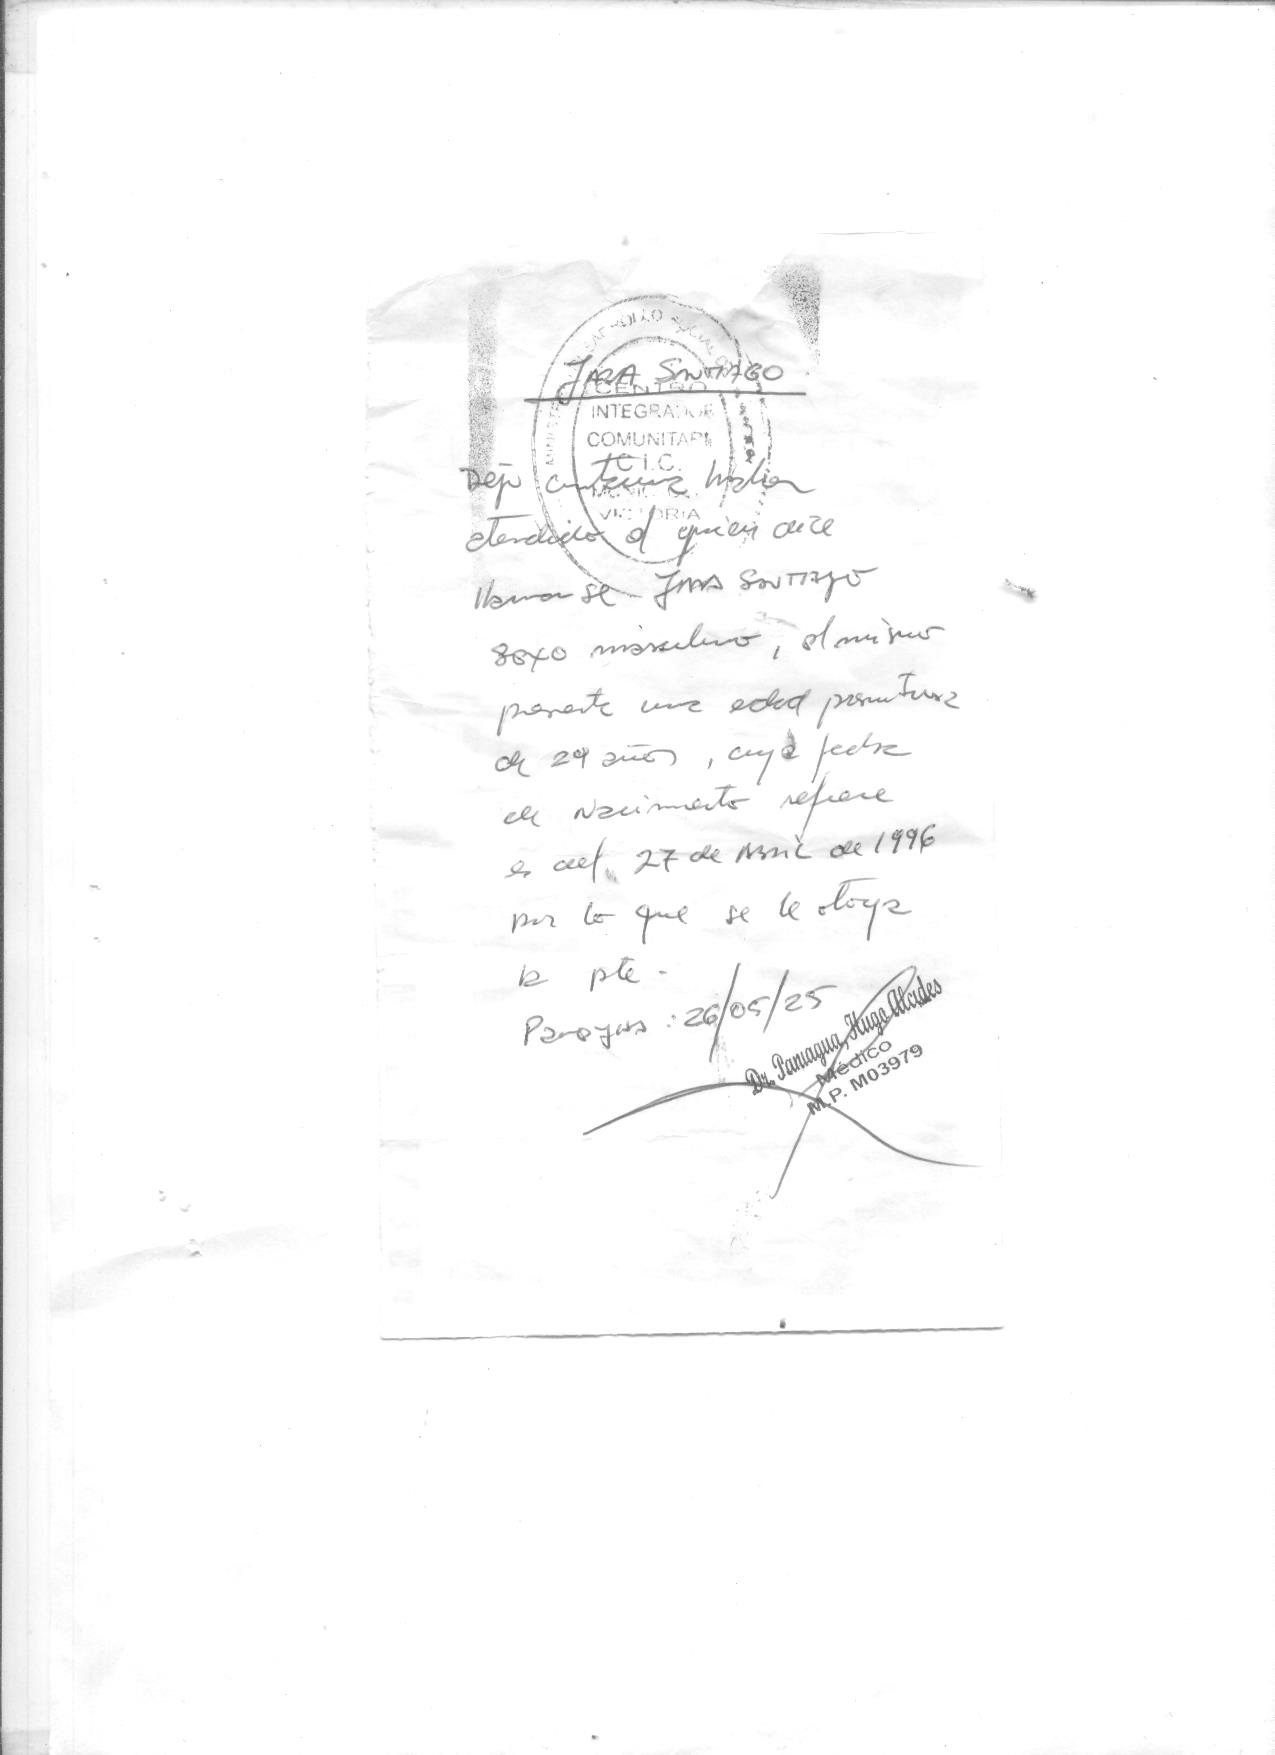 JARA SANTIAGO
DESARROLLO SOCIAL
CENTRO
INTEGRADOR
COMUNITARI
C.I.C.
VICTORIA
Dejo constancia haber
atendido al quien dice
llamarse JARA SANTIAGO
sexo masculino, el mismo
presenta una edad prematura
de 29 años, cuya fecha
de Nacimiento refiere
es del 27 de Abril de 1996
por lo que se le otorga
la pte.
26/05/25
Dr. Paniagua, Hugo Alcides
Médico
M.P. M03979